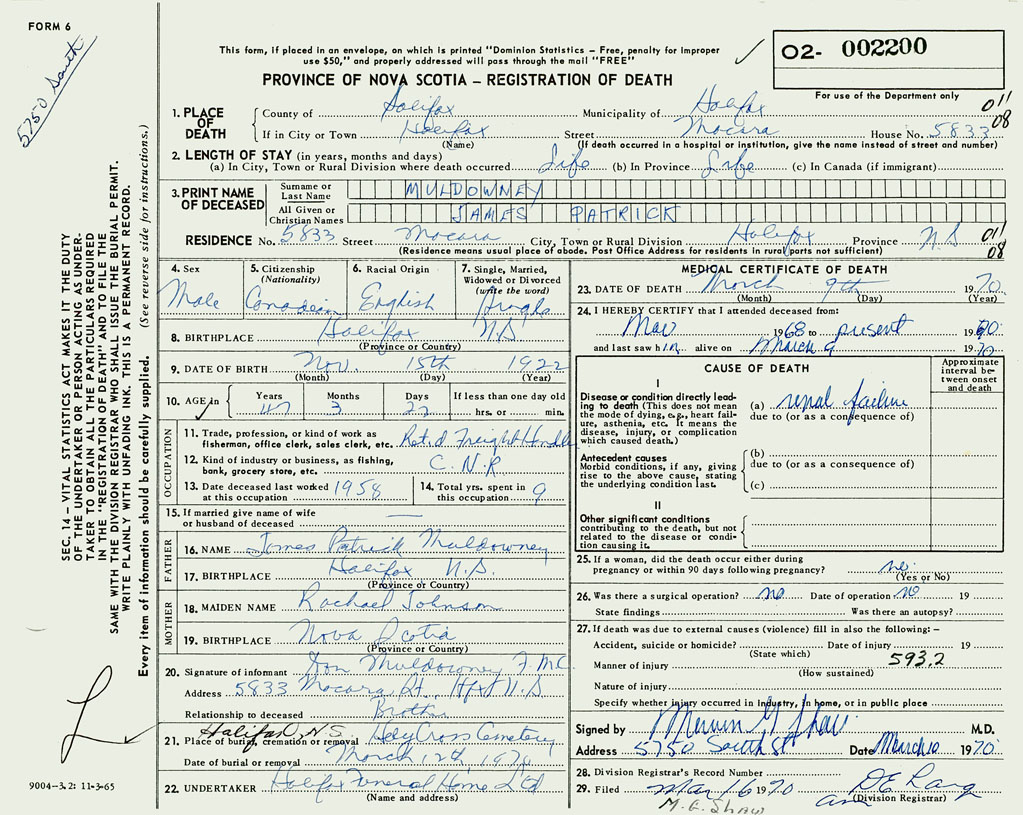 FORM 6
5750 South
This form, if placed in an envelope, on which is printed "Dominion Statistics – Free, penalty for improper
use $50," and properly addressed will pass through the mail "FREE"
O2- 002200
PROVINCE OF NOVA SCOTIA – REGISTRATION OF DEATH
For use of the Department only
1. PLACE OF DEATH County of Halifax Municipality of Halifax 011
If in City or Town Halifax Street Macara House No. 5833 08
(Name) (If death occurred in a hospital or institution, give the name instead of street and number)
2. LENGTH OF STAY (in years, months and days)
(a) In City, Town or Rural Division where death occurred Life (b) In Province Life (c) In Canada (if immigrant)
3. PRINT NAME OF DECEASED Surname or Last Name MULDOWNEY
All Given or Christian Names JAMES PATRICK
RESIDENCE No. 5833 Street Macara City, Town or Rural Division Halifax Province N.S 011
(Residence means usual place of abode. Post Office Address for residents in rural parts not sufficient) 08
4. Sex Male
5. Citizenship (Nationality) Canadian
6. Racial Origin English
7. Single, Married, Widowed or Divorced (write the word) Single
8. BIRTHPLACE Halifax N.S.
(Province or Country)
9. DATE OF BIRTH Nov. 15th 1922
(Month) (Day) (Year)
10. AGE in Years 47 Months 3 Days 22 If less than one day old hrs. or min.
OCCUPATION
11. Trade, profession, or kind of work as fisherman, office clerk, sales clerk, etc. Ret'd Freight Handler
12. Kind of industry or business, as fishing, bank, grocery store, etc. C.N.R
13. Date deceased last worked at this occupation 1958
14. Total yrs. spent in this occupation 9
15. If married give name of wife or husband of deceased —
FATHER
16. NAME James Patrick Muldowney
17. BIRTHPLACE Halifax N.S.
(Province or Country)
MOTHER
18. MAIDEN NAME Rachael Johnson
19. BIRTHPLACE Nova Scotia
(Province or Country)
20. Signature of informant Muldowney
Address 5833 Macara St. Hfx N.S
Relationship to deceased Brother
Halifax, N.S.
21. Place of burial, cremation or removal Holy Cross Cemetery
Date of burial or removal March 12th, 1970
22. UNDERTAKER Halifax Funeral Home Ltd
(Name and address)
MEDICAL CERTIFICATE OF DEATH
23. DATE OF DEATH March 9th 1970
(Month) (Day) (Year)
24. I HEREBY CERTIFY that I attended deceased from:
Mar 1968 to present 1970
and last saw him alive on March 9 1970
CAUSE OF DEATH
Approximate interval between onset and death
I
Disease or condition directly leading to death (This does not mean the mode of dying, e.g., heart failure, asthenia, etc. It means the disease, injury, or complication which caused death.)
(a) renal failure
due to (or as a consequence of)
Antecedent causes
Morbid conditions, if any, giving rise to the above cause, stating the underlying condition last.
(b)
due to (or as a consequence of)
(c)
II
Other significant conditions
contributing to the death, but not related to the disease or condition causing it.
25. If a woman, did the death occur either during
pregnancy or within 90 days following pregnancy? no
(Yes or No)
26. Was there a surgical operation? no Date of operation no 19
State findings Was there an autopsy?
27. If death was due to external causes (violence) fill in also the following: –
Accident, suicide or homicide? Date of injury 19
(State which) 593.2
Manner of injury
(How sustained)
Nature of injury
Specify whether injury occurred in Industry, in home, or in public place
Signed by Mervin G Shaw M.D.
Address 5750 South St Date March 10 1970
28. Division Registrar's Record Number
29. Filed Mar 16 1970
(Division Registrar)
M.G. Shaw
SEC. 14 – VITAL STATISTICS ACT MAKES IT THE DUTY
OF THE UNDERTAKER OR PERSON ACTING AS UNDER-
TAKER TO OBTAIN ALL THE PARTICULARS REQUIRED
IN THE "REGISTRATION OF DEATH" AND TO FILE THE
SAME WITH THE DIVISION REGISTRAR WHO SHALL ISSUE THE BURIAL PERMIT.
WRITE PLAINLY WITH UNFADING INK. THIS IS A PERMANENT RECORD.
Every item of information should be carefully supplied. (See reverse side for instructions.)
9004–3.2: 11-3-65